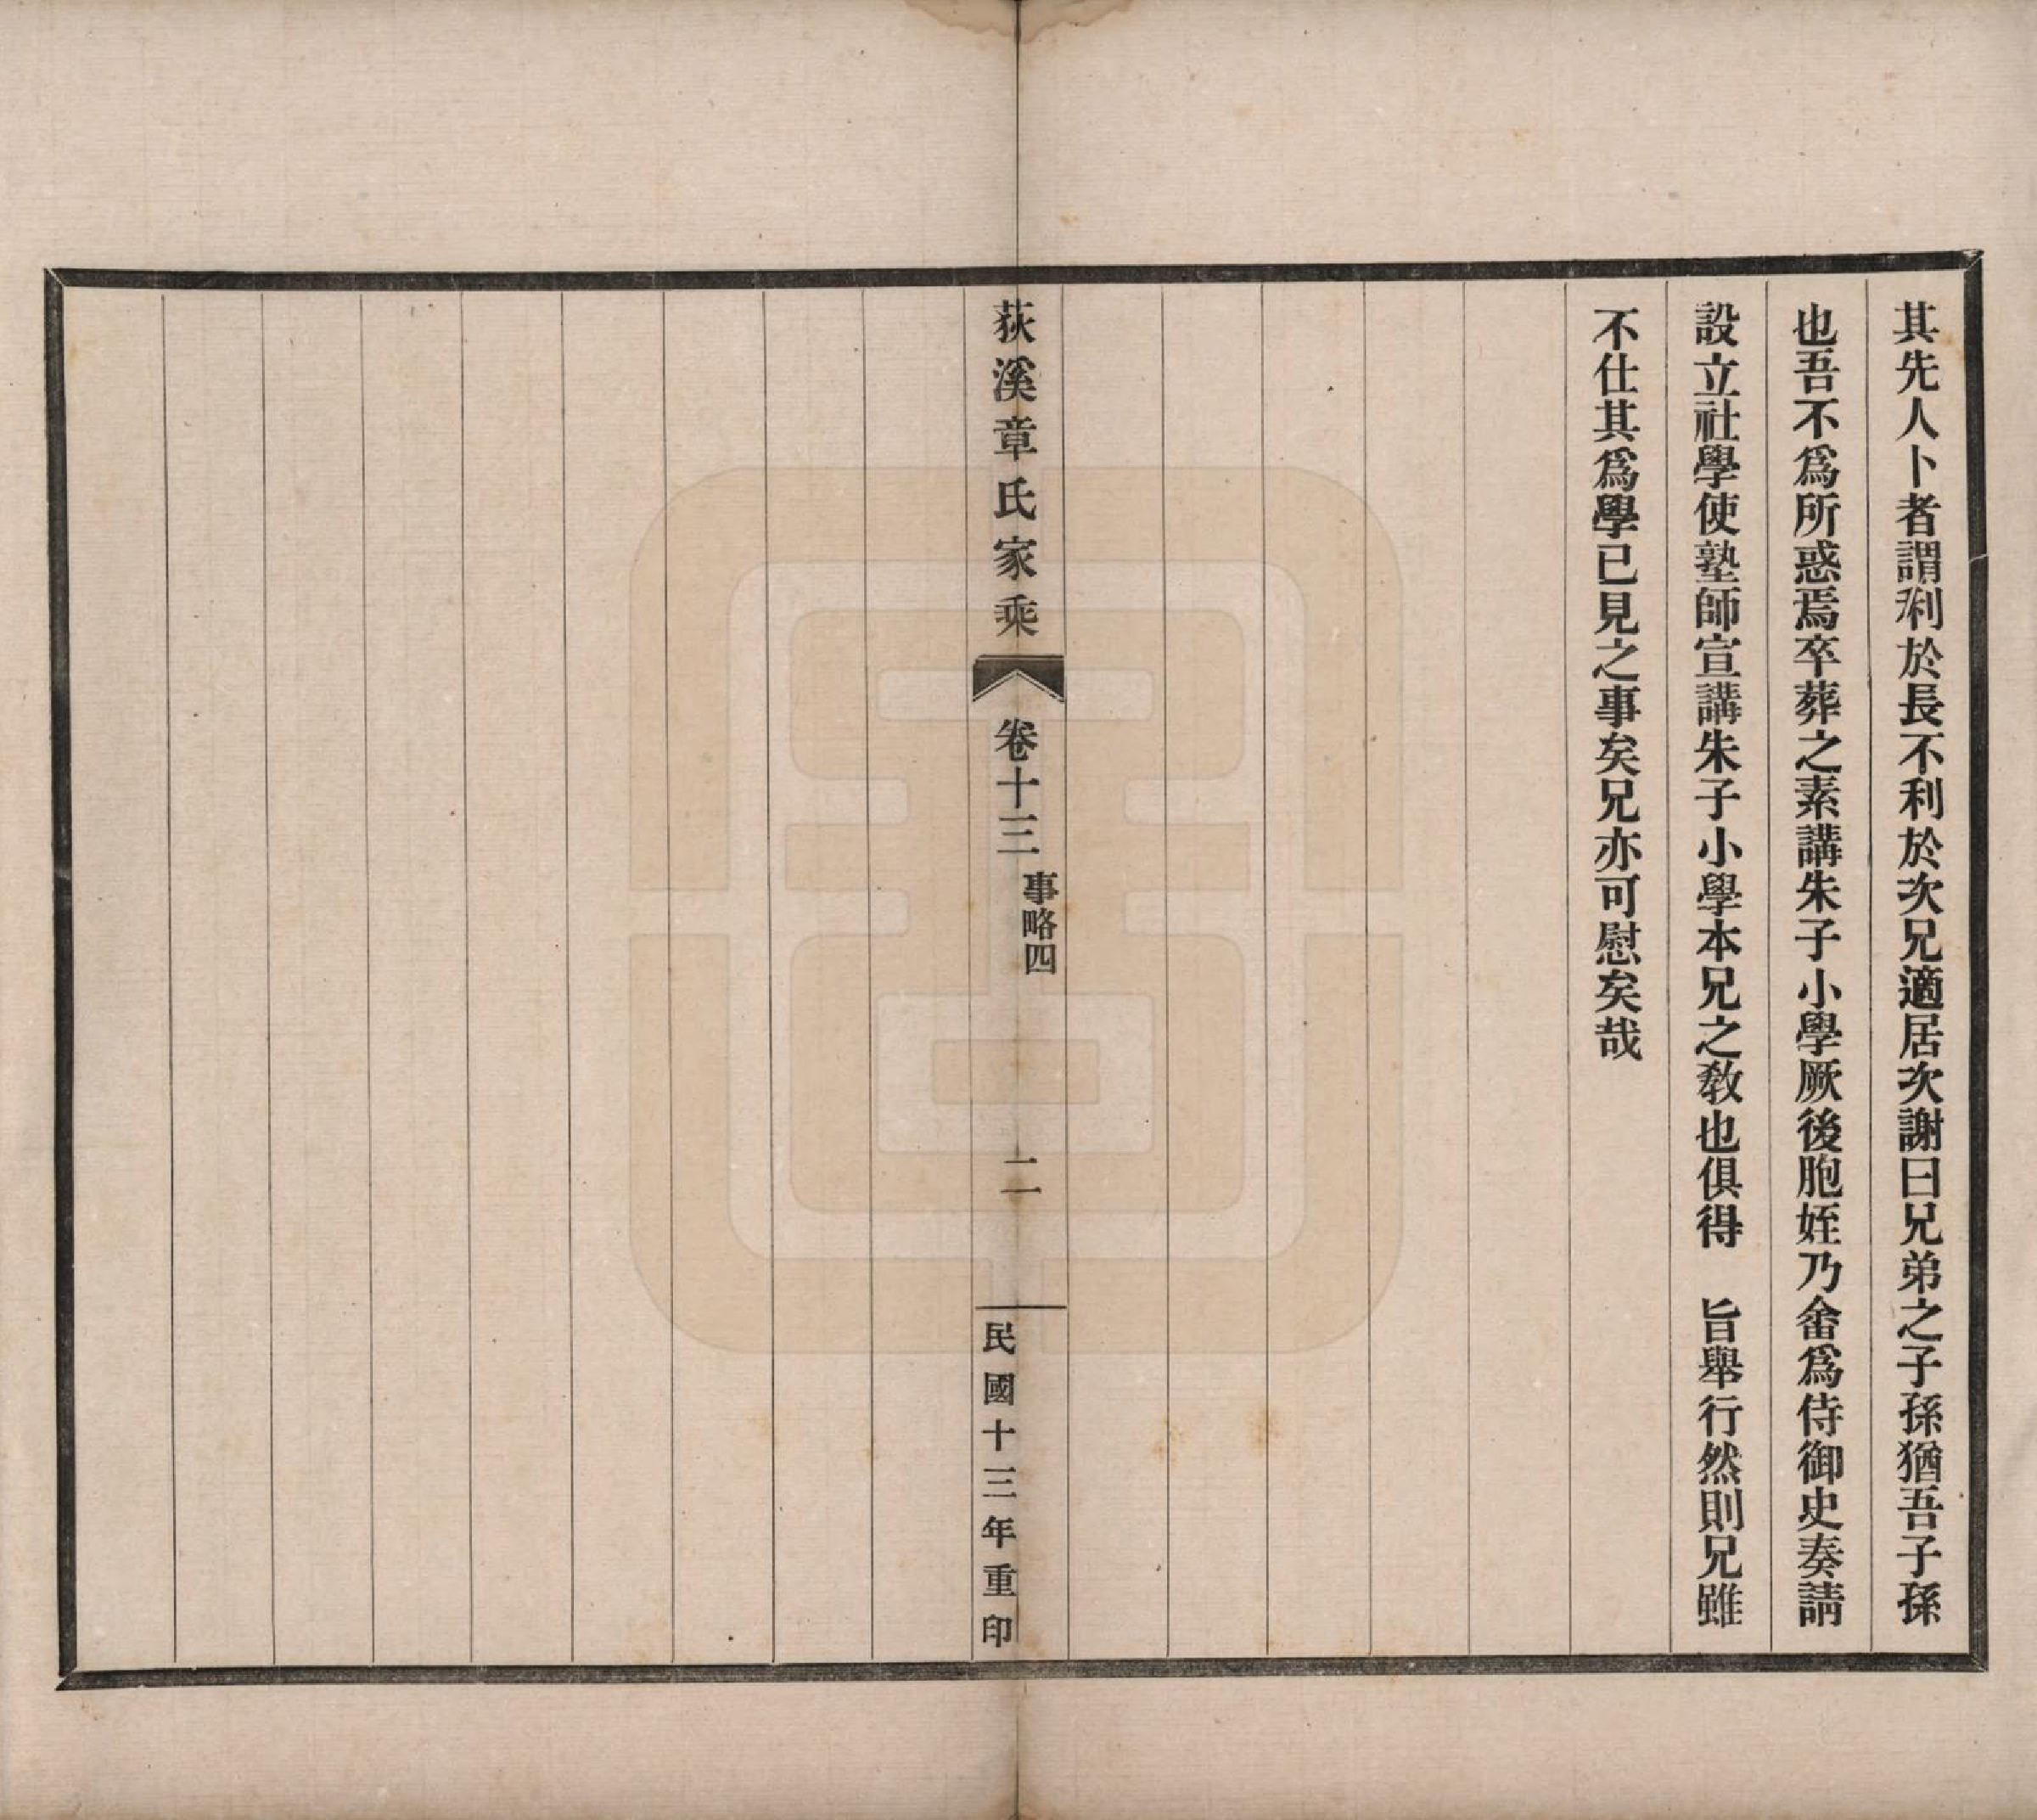 其先人卜者謂利於長不利於次兄適居次謝曰兄弟之子孫猶吾子孫
也吾不爲所惑焉卒葬之素講朱子小學厥後胞姪乃畬爲侍御史奏請
設立社學使塾師宣講朱子小學本兄之敎也俱得　旨舉行然則兄雖
不仕其爲學已見之事矣兄亦可慰矣哉
荻溪章氏家乘
卷十三
事略四
二
民國十三年重印